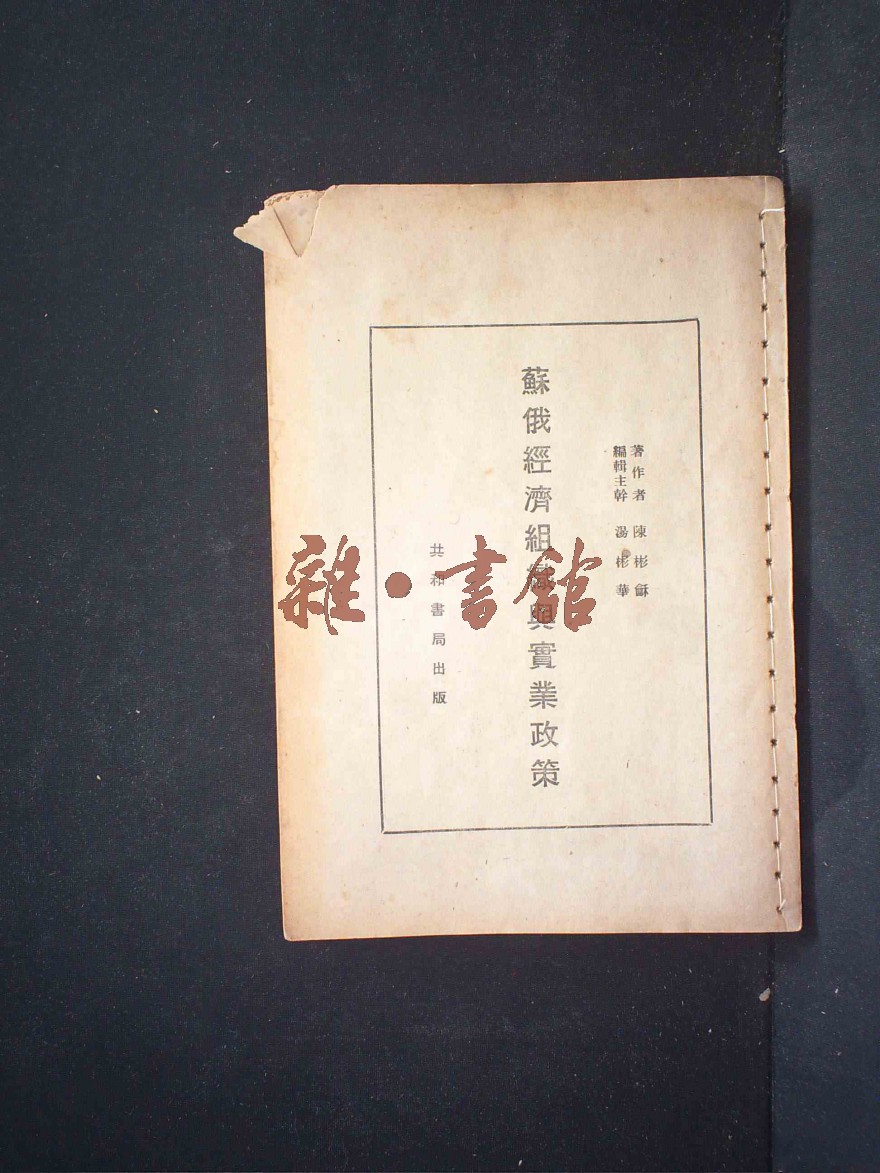 著作者 陳彬龢
編輯主幹 湯彬華
蘇俄經濟組織與實業政策
共和書局出版
雜·書館